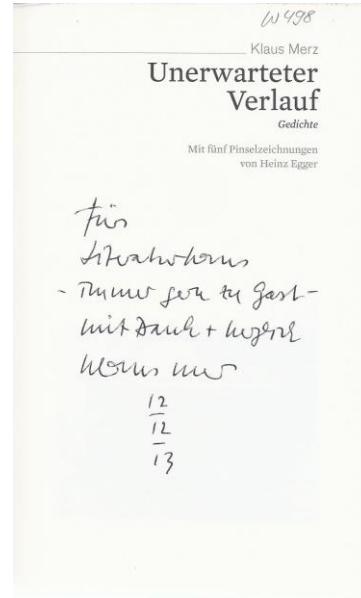 W498
Klaus Merz
Unerwarteter
Verlauf
Gedichte
Mit fünf Pinselzeichnungen
von Heinz Egger
Fürs
Literaturhaus
- Immer gern zu Gast -
mit Dank + herzlich
Klaus Merz
12
12
13